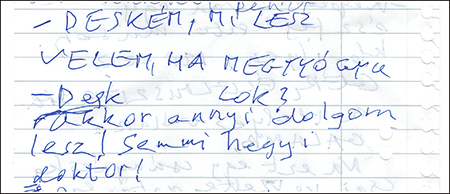 - DESKÉM, MI LESZ
VELEM, HA MEGGYÓGYU
- Desk LOK?
akkor annyi dolgom
lesz! Semmi hegyi
doktor!